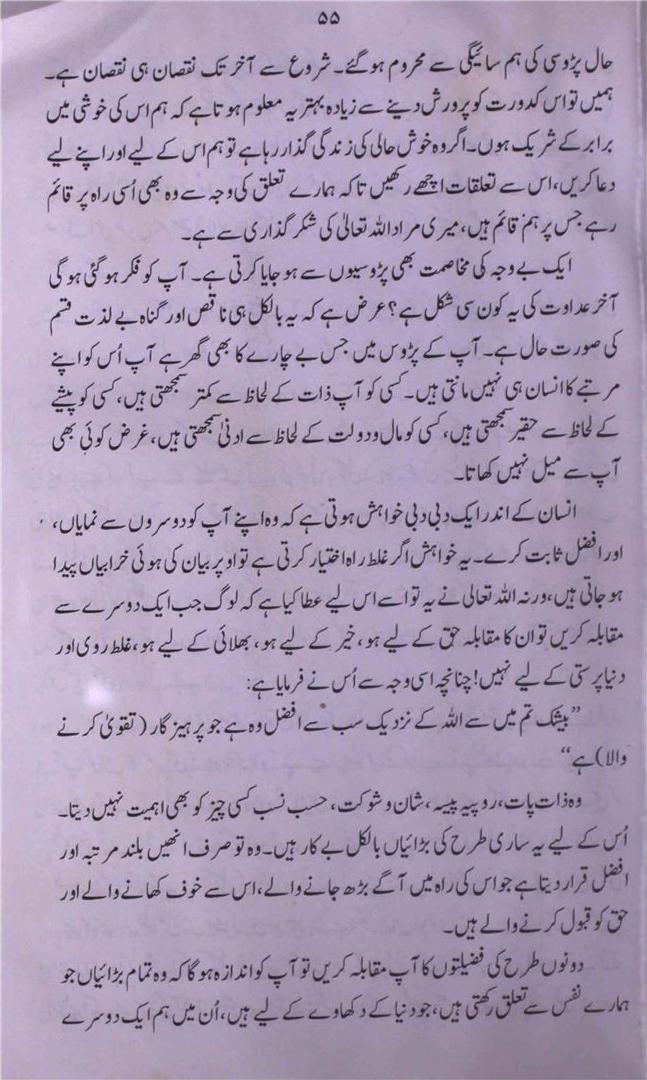 ۵۵
حال پڑوسی کی ہم سائیگی سے محروم ہو گئے۔ شروع سے آخر تک نقصان ہی نقصان ہے۔
ہمیں تو اس کدورت کو پرورش دینے سے زیادہ بہتر یہ معلوم ہوتا ہے کہ ہم اس کی خوشی میں
برابر کے شریک ہوں۔ اگر وہ خوش حالی کی زندگی گذار رہا ہے تو ہم اس کے لیے اور اپنے لیے
دعا کریں، اس سے تعلقات اچھے رکھیں تاکہ ہمارے تعلق کی وجہ سے وہ بھی اُسی راہ پر قائم
رہے جس پر ہم قائم ہیں، میری مراد اللہ تعالیٰ کی شکر گذاری سے ہے۔
ایک بے وجہ کی مخاصمت بھی پڑوسیوں سے ہو جایا کرتی ہے۔ آپ کو فکر ہو گئی ہوگی
آخر عداوت کی یہ کون سی شکل ہے؟ عرض ہے کہ یہ بالکل ہی ناقص اور گناہ بے لذت قسم
کی صورت حال ہے۔ آپ کے پڑوس میں جس بے چارے کا بھی گھر ہے آپ اُس کو اپنے
مرتبے کا انسان ہی نہیں مانتی ہیں۔ کسی کو آپ ذات کے لحاظ سے کمتر سمجھتی ہیں، کسی کو پیشے
کے لحاظ سے حقیر سمجھتی ہیں، کسی کو مال و دولت کے لحاظ سے ادنیٰ سمجھتی ہیں، غرض کوئی بھی
آپ سے میل نہیں کھاتا۔
انسان کے اندر ایک دبی دبی خواہش ہوتی ہے کہ وہ اپنے آپ کو دوسروں سے نمایاں،
اور افضل ثابت کرے۔ یہ خواہش اگر غلط راہ اختیار کرتی ہے تو اوپر بیان کی ہوئی خرابیاں پیدا
ہو جاتی ہیں، ورنہ اللہ تعالی نے یہ تو اسے اس لیے عطا کیا ہے کہ لوگ جب ایک دوسرے سے
مقابلہ کریں تو ان کا مقابلہ حق کے لیے ہو، خیر کے لیے ہو، بھلائی کے لیے ہو، غلط روی اور
دنیا پرستی کے لیے نہیں! چنانچہ اسی وجہ سے اُس نے فرمایا ہے:
”بیشک تم میں سے اللہ کے نزدیک سب سے افضل وہ ہے جو پرہیز گار (تقویٰ کرنے
والا) ہے“
وہ ذات پات، روپیہ پیسہ، شان و شوکت، حسب نسب کسی چیز کو بھی اہمیت نہیں دیتا۔
اُس کے لیے یہ ساری طرح کی بڑائیاں بالکل بے کار ہیں۔ وہ تو صرف انھیں بلند مرتبہ اور
افضل قرار دیتا ہے جو اس کی راہ میں آگے بڑھ جانے والے، اس سے خوف کھانے والے اور
حق کو قبول کرنے والے ہیں۔
دونوں طرح کی فضیلتوں کا آپ مقابلہ کریں تو آپ کو اندازہ ہوگا کہ وہ تمام بڑائیاں جو
ہمارے نفس سے تعلق رکھتی ہیں، جو دنیا کے دکھاوے کے لیے ہیں، اُن میں ہم ایک دوسرے